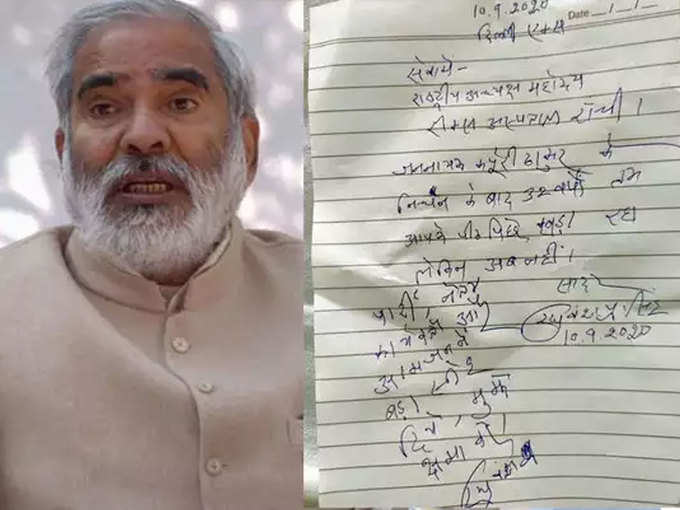 10.9.2020
Date __/__/__
दिल्ली एम्स
सेवामें-
राष्ट्रीय अध्यक्ष महोदय
रिम्स अस्पताल रांची।
जननायक कर्पूरी ठाकुर के
निधन के बाद 32 वर्षों तक
आपके पीठ पिछे खड़ा रहा
लेकिन अब नहीं।
पार्टी, नेता
कार्यकर्ता और
आमजन ने
बड़ा स्नेह
दिये, मुझे
क्षमा करें।
सादर
रघुवंश प्र० सिंह
10.9.2020